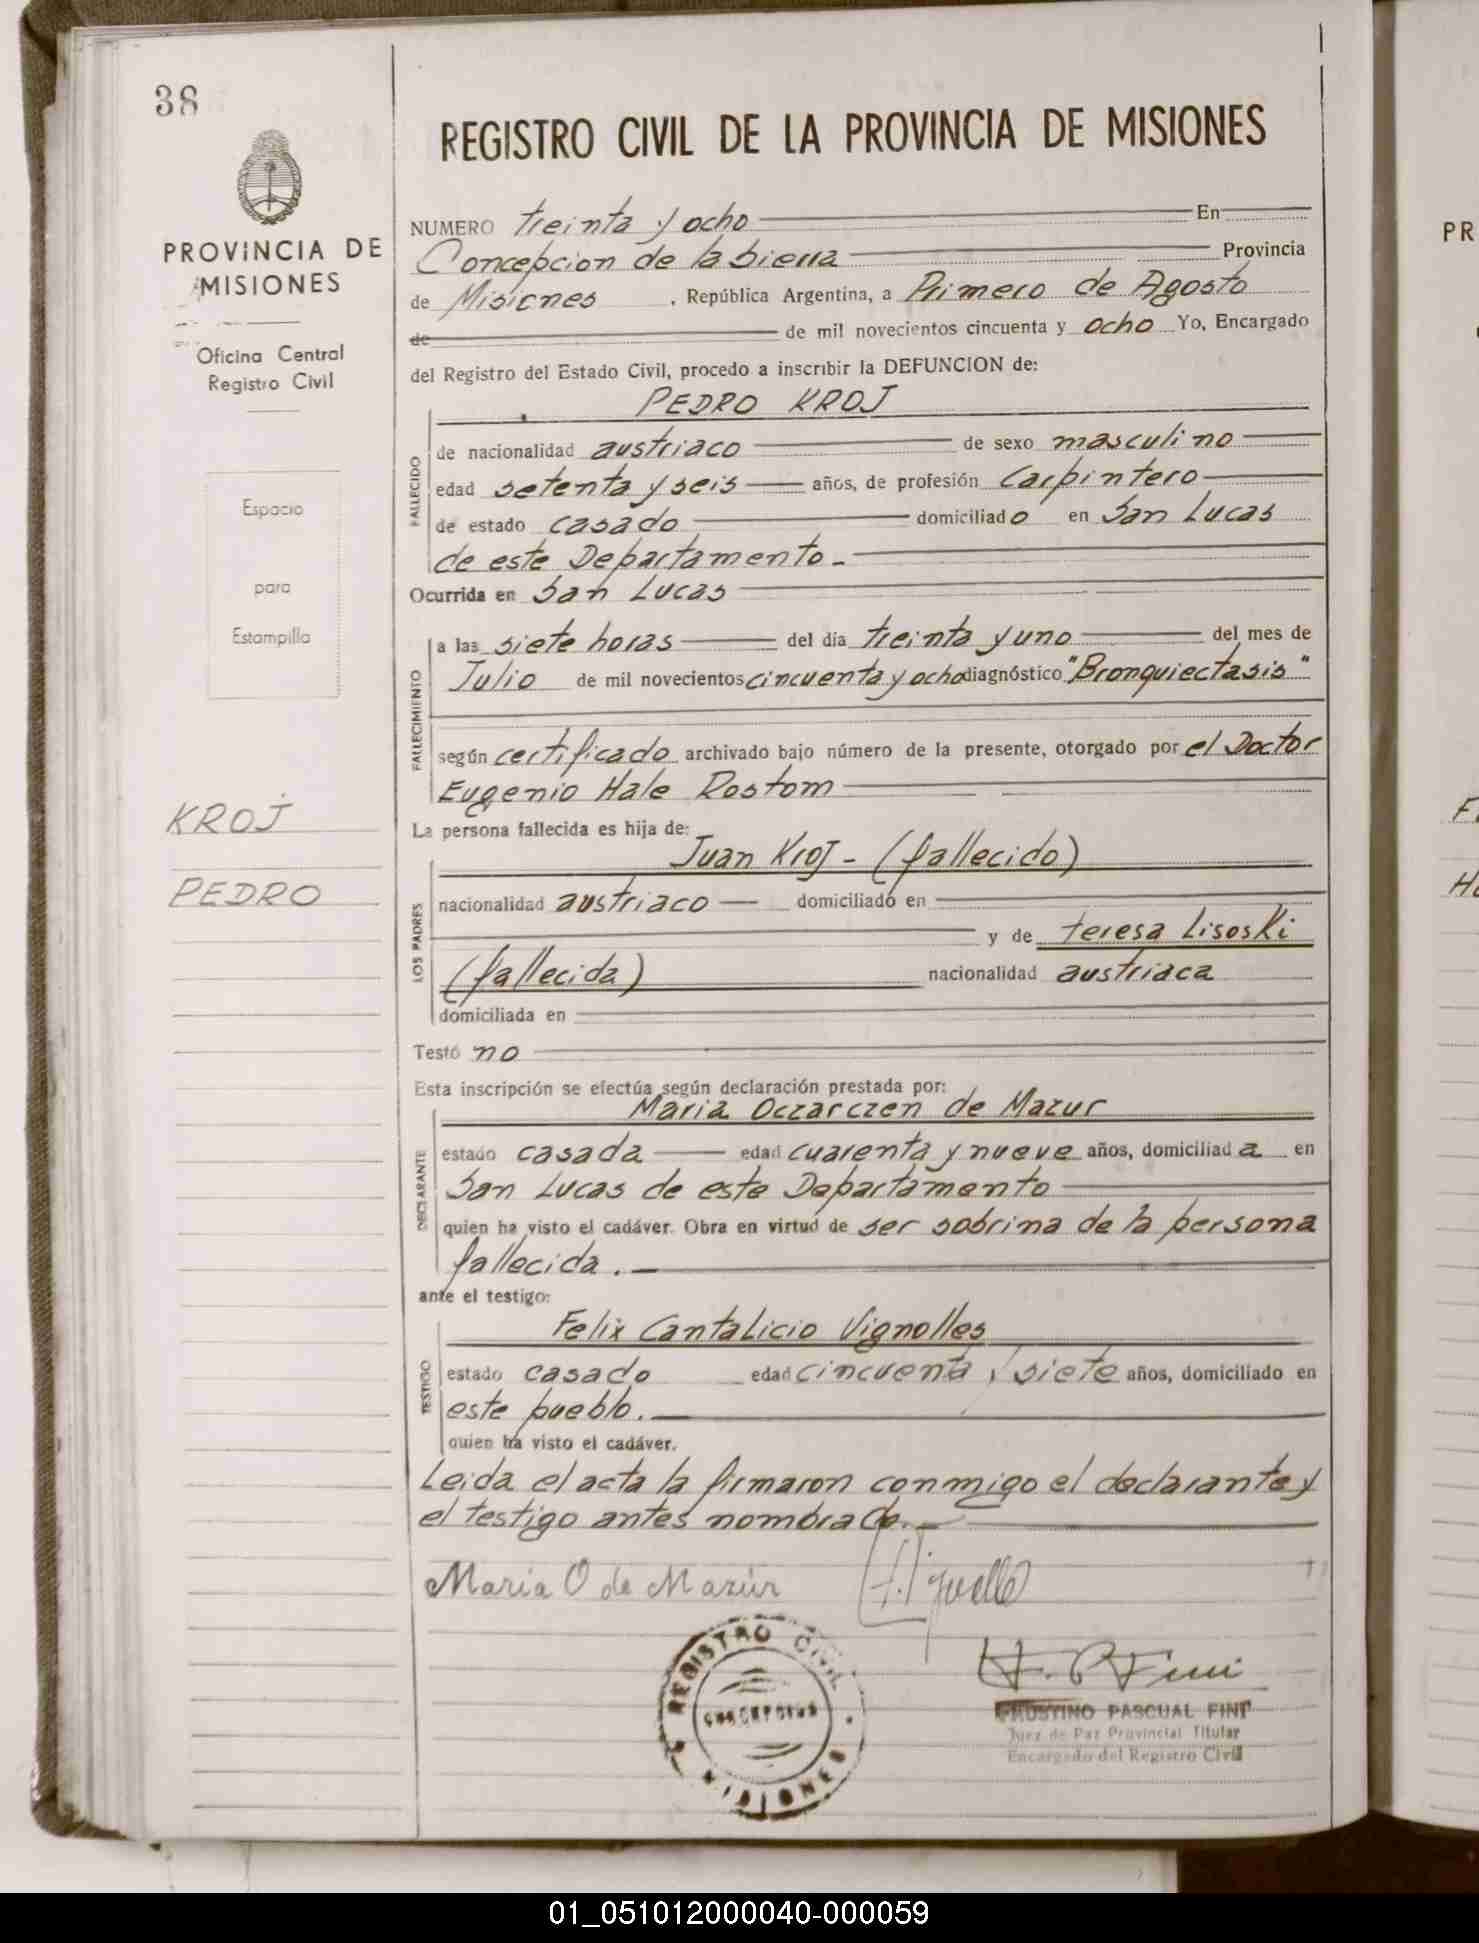 38
REGISTRO CIVIL DE LA PROVINCIA DE MISIONES
PROVINCIA DE
MISIONES
Oficina Central
Registro Civil
Espacio
para
Estampilla
KROJ
PEDRO
NUMERO treinta y ocho En
Concepcion de la Sierra Provincia
de Misiones , República Argentina, a Primero de Agosto
de de mil novecientos cincuenta y ocho Yo, Encargado
del Registro del Estado Civil, procedo a inscribir la DEFUNCION de:
PEDRO KROJ
FALLECIDO
de nacionalidad austriaco de sexo masculino
edad setenta y seis años, de profesión Carpintero
de estado casado domiciliado en San Lucas
de este Departamento.-
Ocurrida en San Lucas
FALECIMIENTO
a las siete horas del día treinta y uno del mes de
Julio de mil novecientos cincuenta y ocho diagnóstico "Bronquiectasis"
según certificado archivado bajo número de la presente, otorgado por el Doctor
Eugenio Hale Rostom
La persona fallecida es hija de:
LOS PADRES
Juan Kroj - (fallecido)
nacionalidad austriaco domiciliado en
y de teresa Lisoski
(fallecida) nacionalidad austriaca
domiciliada en
Testó no
Esta inscripción se efectúa según declaración prestada por:
DECLARANTE
Maria Oczarczen de Mazur
estado casada edad cuarenta y nueve años, domiciliada en
San Lucas de este Departamento
quien ha visto el cadáver. Obra en virtud de ser sobrina de la persona
fallecida.-
ante el testigo:
TESTIGO
Felix Cantalicio Vignolles
estado casado edad cincuenta y siete años, domiciliado en
este pueblo.-
quien ha visto el cadáver.
Leida el acta la firmaron conmigo el declarante y
el testigo antes nombrado.-
Maria O de Mazúr
REGISTRO CIVIL
CONCEPCION
MISIONES
FAUSTINO PASCUAL FINI
Juez de Paz Provincial Titular
Encargado del Registro Civil
PR
01_051012000040-000059